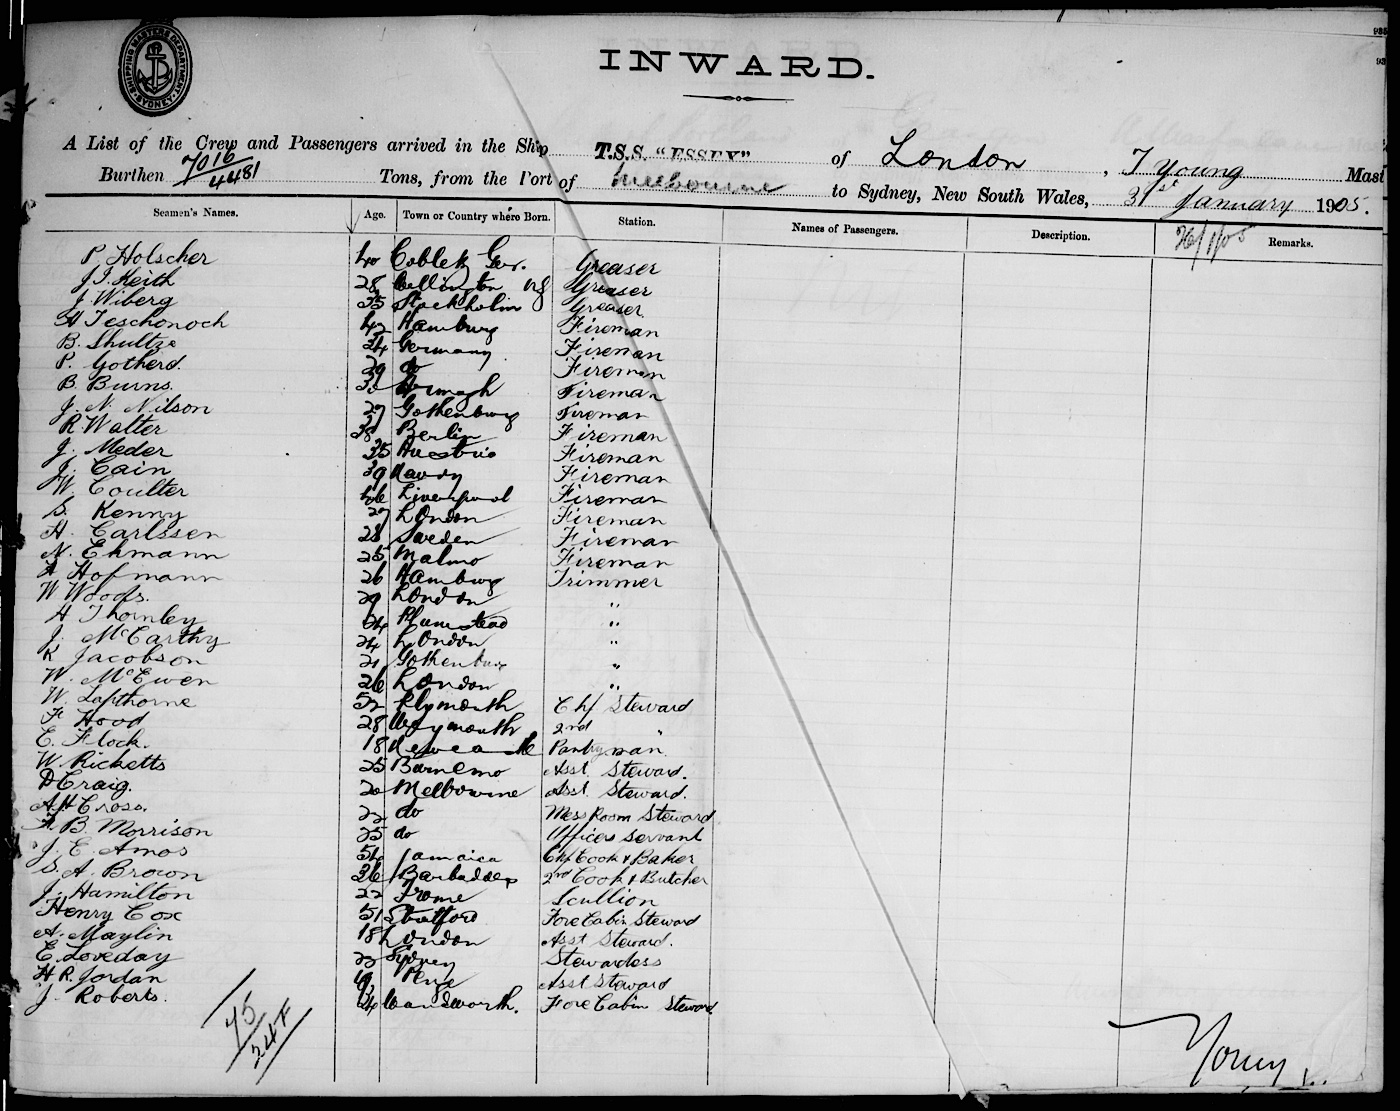 SHIPPING MASTERS DEPARTMENT. SYDNEY
INWARD.
A List of the Crew and Passengers arrived in the Ship T.S.S. "ESSEX" of London, J Young Mast
Burthen 7016/4481 Tons, from the Port of Melbourne to Sydney, New South Wales, 31st January 1905.
Seamen's Names. Age. Town or Country where Born. Station. Names of Passengers. Description. 26/1/05 Remarks.
P. Holscher 40 Cobletz Ger. Greaser
J.T. Keith 28 Greaser
J. Wiberg 35 Stockholm Greaser
H Teschonoch 42 Hamburg Fireman
B. Shultze 34 Germany Fireman
P. Gotherd. 29 do Fireman
B. Burns. Armagh Fireman
J. N. Nilson 27 Gothenburg Fireman
R Walter 38 Berlin Fireman
J. Meder 35 Austria Fireman
J. Cain 39 Fireman
W. Coulter 46 Liverpool Fireman
S. Kenny 27 London Fireman
H. Carlssen 28 Sweden Fireman
N. Ehmann 25 Malmo Fireman
A Hofmann 26 Hamburg Trimmer
W Woods. 29 London "
A Thornley 24 Plumstead "
J. McCarthy 24 London "
K Jacobson 21 Gothenburg "
W. McEwen 26 London "
W. Lapthorne 52 Plymouth Chf Steward
F Hood 28 Weymouth 2nd "
E. Flock. 18 Newcastle Pantryman
W. Ricketts 25 Asst. Steward.
D Craig. 20 Melbourne Asst. Steward.
A.H Cross. 22 do Mess Room Steward
A. B. Morrison 25 do Officers Servant
J. E. Amos 54 Jamaica Chf Cook & Baker
S. A. Brown 36 Barbados 2nd Cook & Butcher
J. Hamilton 22 Frome Scullion
Henry Cox 51 Stratford Fore Cabin Steward
A. Maylin 18 London Asst Steward.
E. Loveday 23 Sydney Stewardess
H R. Jordan 19 Penge Asst Steward
J. Roberts. 34 Wandsworth. Fore Cabin Steward
75
247
Young